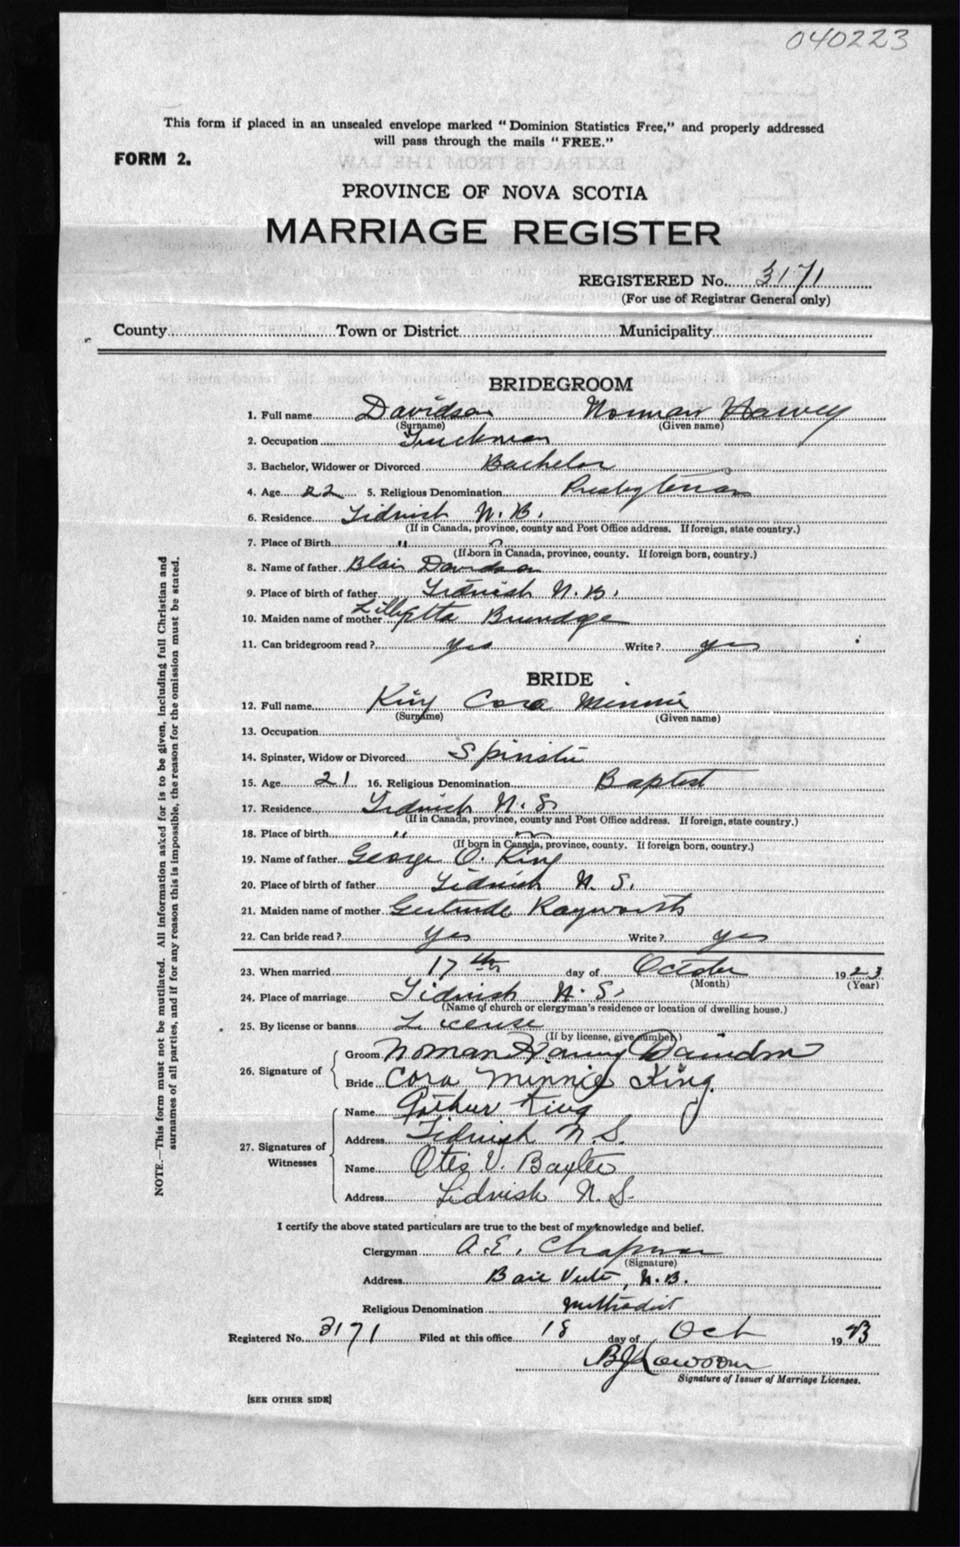 040223
This form if placed in an unsealed envelope marked "Dominion Statistics Free," and properly addressed
will pass through the mails "FREE."
FORM 2.
PROVINCE OF NOVA SCOTIA
MARRIAGE REGISTER
REGISTERED No. 3171
(For use of Registrar General only)
County Town or District Municipality
BRIDEGROOM
1. Full name Davidson Norman Harvey
(Surname) (Given name)
2. Occupation Truckman
3. Bachelor, Widower or Divorced Bachelor
4. Age 22 5. Religious Denomination Presbyterian
6. Residence Tidnish N.B.
(If in Canada, province, county and Post Office address. If foreign, state country.)
7. Place of Birth " "
(If born in Canada, province, county. If foreign born, country.)
8. Name of father Blair Davidson
9. Place of birth of father Tidnish N.B.
10. Maiden name of mother Brundge
11. Can bridegroom read? Yes Write? yes
BRIDE
12. Full name King Cora Minnie
(Surname) (Given name)
13. Occupation
14. Spinster, Widow or Divorced Spinster
15. Age 21 16. Religious Denomination Baptist
17. Residence Tidnish N.S.
(If in Canada, province, county and Post Office address. If foreign, state country.)
18. Place of birth " "
(If born in Canada, province, county. If foreign born, country.)
19. Name of father George O. King
20. Place of birth of father Tidnish N.S.
21. Maiden name of mother Gertrude Rayworth
22. Can bride read? Yes Write? yes
23. When married 17th day of October 1923
(Month) (Year)
24. Place of marriage Tidnish N.S.
(Name of church or clergyman's residence or location of dwelling house.)
25. By license or banns License
(If by license, give number)
26. Signature of
Groom Norman Harvey Davidson
Bride Cora Minnie King.
27. Signatures of Witnesses
Name Arthur King
Address Tidnish N.S.
Name Otis V. Baxter
Address Tidnish N.S.
I certify the above stated particulars are true to the best of my knowledge and belief.
Clergyman A.E. Chapman
(Signature)
Address Baie Verte, N.B.
Religious Denomination Methodist
Registered No. 3171 Filed at this office 18 day of Oct 1923
Signature of Issuer of Marriage Licenses.
[SEE OTHER SIDE]
NOTE.—This form must not be mutilated. All information asked for is to be given, including full Christian and
surnames of all parties, and if for any reason this is impossible, the reason for the omission must be stated.